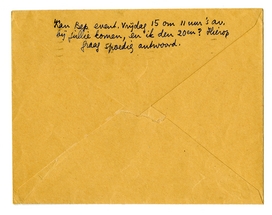 Kan Bep event. Vrijdag 15 om 11 uur 's av.
bij jullie komen, en ik den 20sten? Hierop
graag spoedig antwoord.